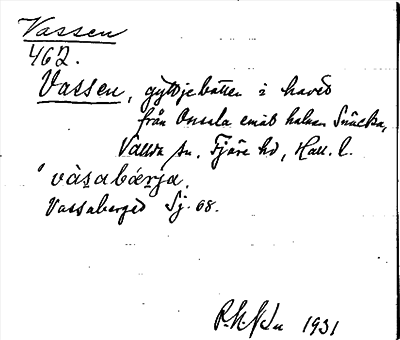 Vassen
462.
Vassen, gyttjebotten i havet
från Onsala emot halvön Snäcka,
Vallda sn. Fjäre hd, Hall. l.
vàsabærja.
Vassaberged Sj. 68.
1931